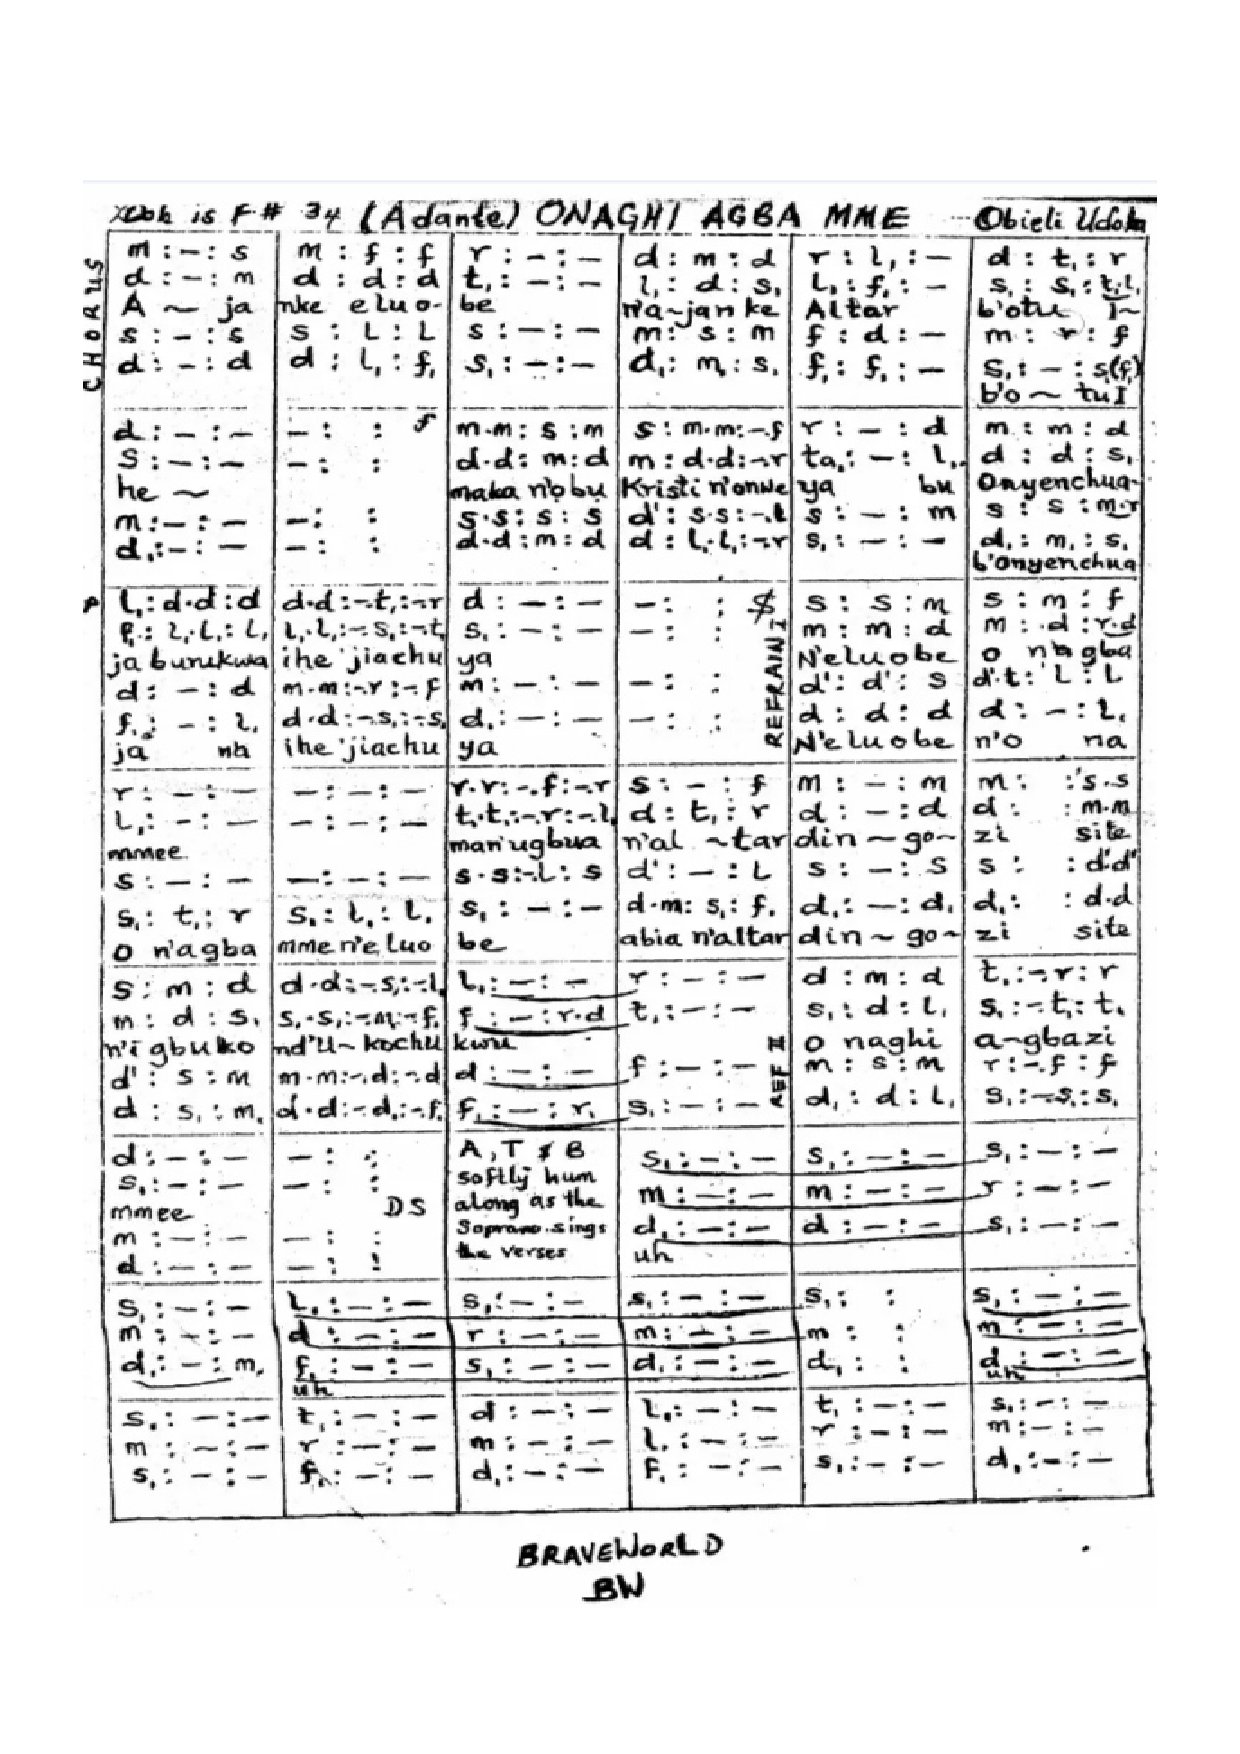 is F# 34 (Adante) ONAGHI AGBA MME Obieli Udoka
CHORUS
m : – : s | m : f : f | r : – : – | d : m : d | r : l, : – | d : t, : r
d : – : m | d : d : d | t, : – : – | l, : d : s, | l, : f, : – | s, : s, : t,.l,
A ~ ja | nke eluo- | be | n'a~jan ke | Altar | b'otu I~
s : – : s | s : l : l | s : – : – | m : s : m | f : d : – | m : r : f
d : – : d | d : l, : f, | s, : – : – | d, : m, : s, | f, : f, : – | s, : – : s,(f,)
b'o ~ tuI
d : – : – | – : : f | m.m : s : m | s : m.m : -.f | r : – : d | m : m : d
s : – : – | – : : | d.d : m : d | m : d.d : -.r | ta, : – : l, | d : d : s,
he ~ | maka n'obu | Kristi n'onwe | ya bu | Onyenchua-
m : – : – | – : : | s.s : s : s | d' : s.s : -.l | s : – : m | s : s : m.r
d, : – : – | – : : | d.d : m : d | d : l,.l, : -.r | s, : – : – | d, : m, : s,
b'onyenchua
P l, : d.d : d | d.d : -.t, : -.r | d : – : – | – : : $ | s : s : m | s : m : f
f, : l,.l, : l, | l,.l, : -.s, : -.t, | s, : – : – | – : : | m : m : d | m : d : r.d
ja burukwa | ihe 'jiachu | ya | REFRAIN I | N'eluobe | o n'agba
d : – : d | m.m : -.r : -.f | m : – : – | – : : | d' : d' : s | d'.t : l : l
f, : – : l, | d.d : -.s, : -.s, | d, : – : – | – : : | d : d : d | d : – : l,
ja nh | ihe 'jiachu | ya | N'eluobe | n'o na
r : – : – | – : – : – | r.r : -.f : -.r | s : – : f | m : – : m | m : : s.s
l, : – : – | – : – : – | t,.t, : -.r : -.l, | d : t, : r | d : – : d | d : : m.m
mmee | man'ugbua | n'al ~tar | din ~ go~ | zi site
s : – : – | – : – : – | s.s : -.l : s | d' : – : l | s : – : s | s : : d'.d'
s, : t, : r | s, : l, : l, | s, : – : – | d.m : s, : f, | d, : – : d, | d, : : d.d
o n'agba | mme n'e luo | be | abia n'altar | din ~ go~ | zi site
s : m : d | d.d : -.s, : -.l, | l, : – : – | r : – : – | d : m : d | t, : -.r : r
m : d : s, | s,.s, : -.m, : -.f, | f : – : r.d | t, : – : – | s, : d : l, | s, : -.t, : t,
n'i gbuko | nd'u~ kochu | kwu | REF II | o naghi | a~gbazi
d' : s : m | m.m : -.d : -.d | d : – : – | f : – : – | m : s : m | r : -.f : f
d : s, : m, | d.d : -.d, : -.f, | f, : – : r, | s, : – : – | d, : d : l, | s, : -.s, : s,
d : – : – | – : : | A, T & B | s, : – : – | s, : – : – | s, : – : –
s, : – : – | – : : | softly hum | m : – : – | m : – : – | r : – : –
mmee | DS | along as the | d, : – : – | d : – : – | s, : – : –
m : – : – | – : : | Soprano sings | uh
d : – : – | – : : | the verses
s, : – : – | l, : – : – | s, : – : – | s, : – : – | s, : : | s, : – : –
m : – : – | d : – : – | r : – : – | m : – : – | m : : | m : – : –
d, : – : m, | f, : – : – | s, : – : – | d, : – : – | d, : : | d, : – : –
uh | uh
s, : – : – | t, : – : – | d : – : – | l, : – : – | t, : – : – | s, : – : –
m : – : – | r : – : – | m : – : – | l, : – : – | r : – : – | m : – : –
s, : – : – | f, : – : – | d, : – : – | f, : – : – | s, : – : – | d, : – : –
BRAVEWORLD
BW